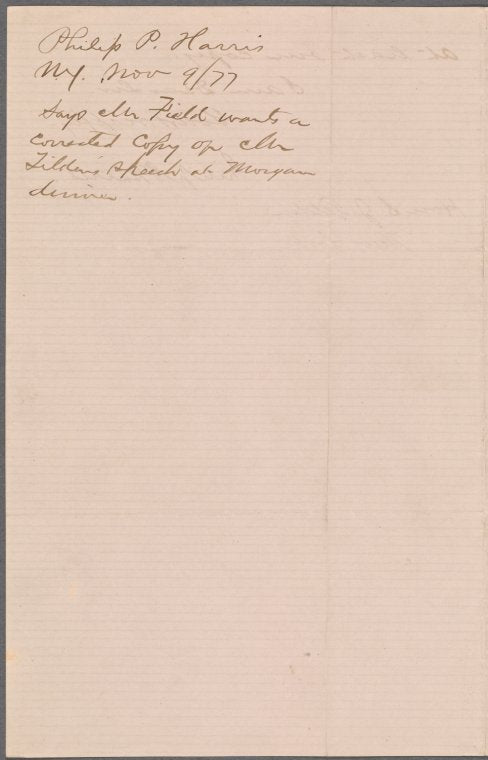 Philip P. Harris
N.Y. Nov 9/77
Says Mr Field wants a
corrected Copy of Mr
Tilden's speech at Morgan
dinner.